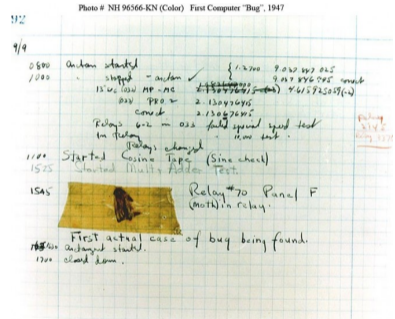 Photo # NH 96566-KN (Color) First Computer "Bug", 1947
92
9/9
0800 antan started
1000 " stopped - antan ✓
{ 1.2700 9.037 847 025
9.037 846 995 correct
13"uc (032) MP - MC 4.615925059(-2)
033 PRO 2 2.130476415
correct 2.130676415
Relays 6-2 in 033 failed special speed test
in relay 10.000 test.
Relays changed
1100 Started Cosine Tape (Sine check)
1525 Started Multi Adder Test.
1545 Relay #70 Panel F
(moth) in relay.
First actual case of bug being found.
antangent started.
1700 closed down.